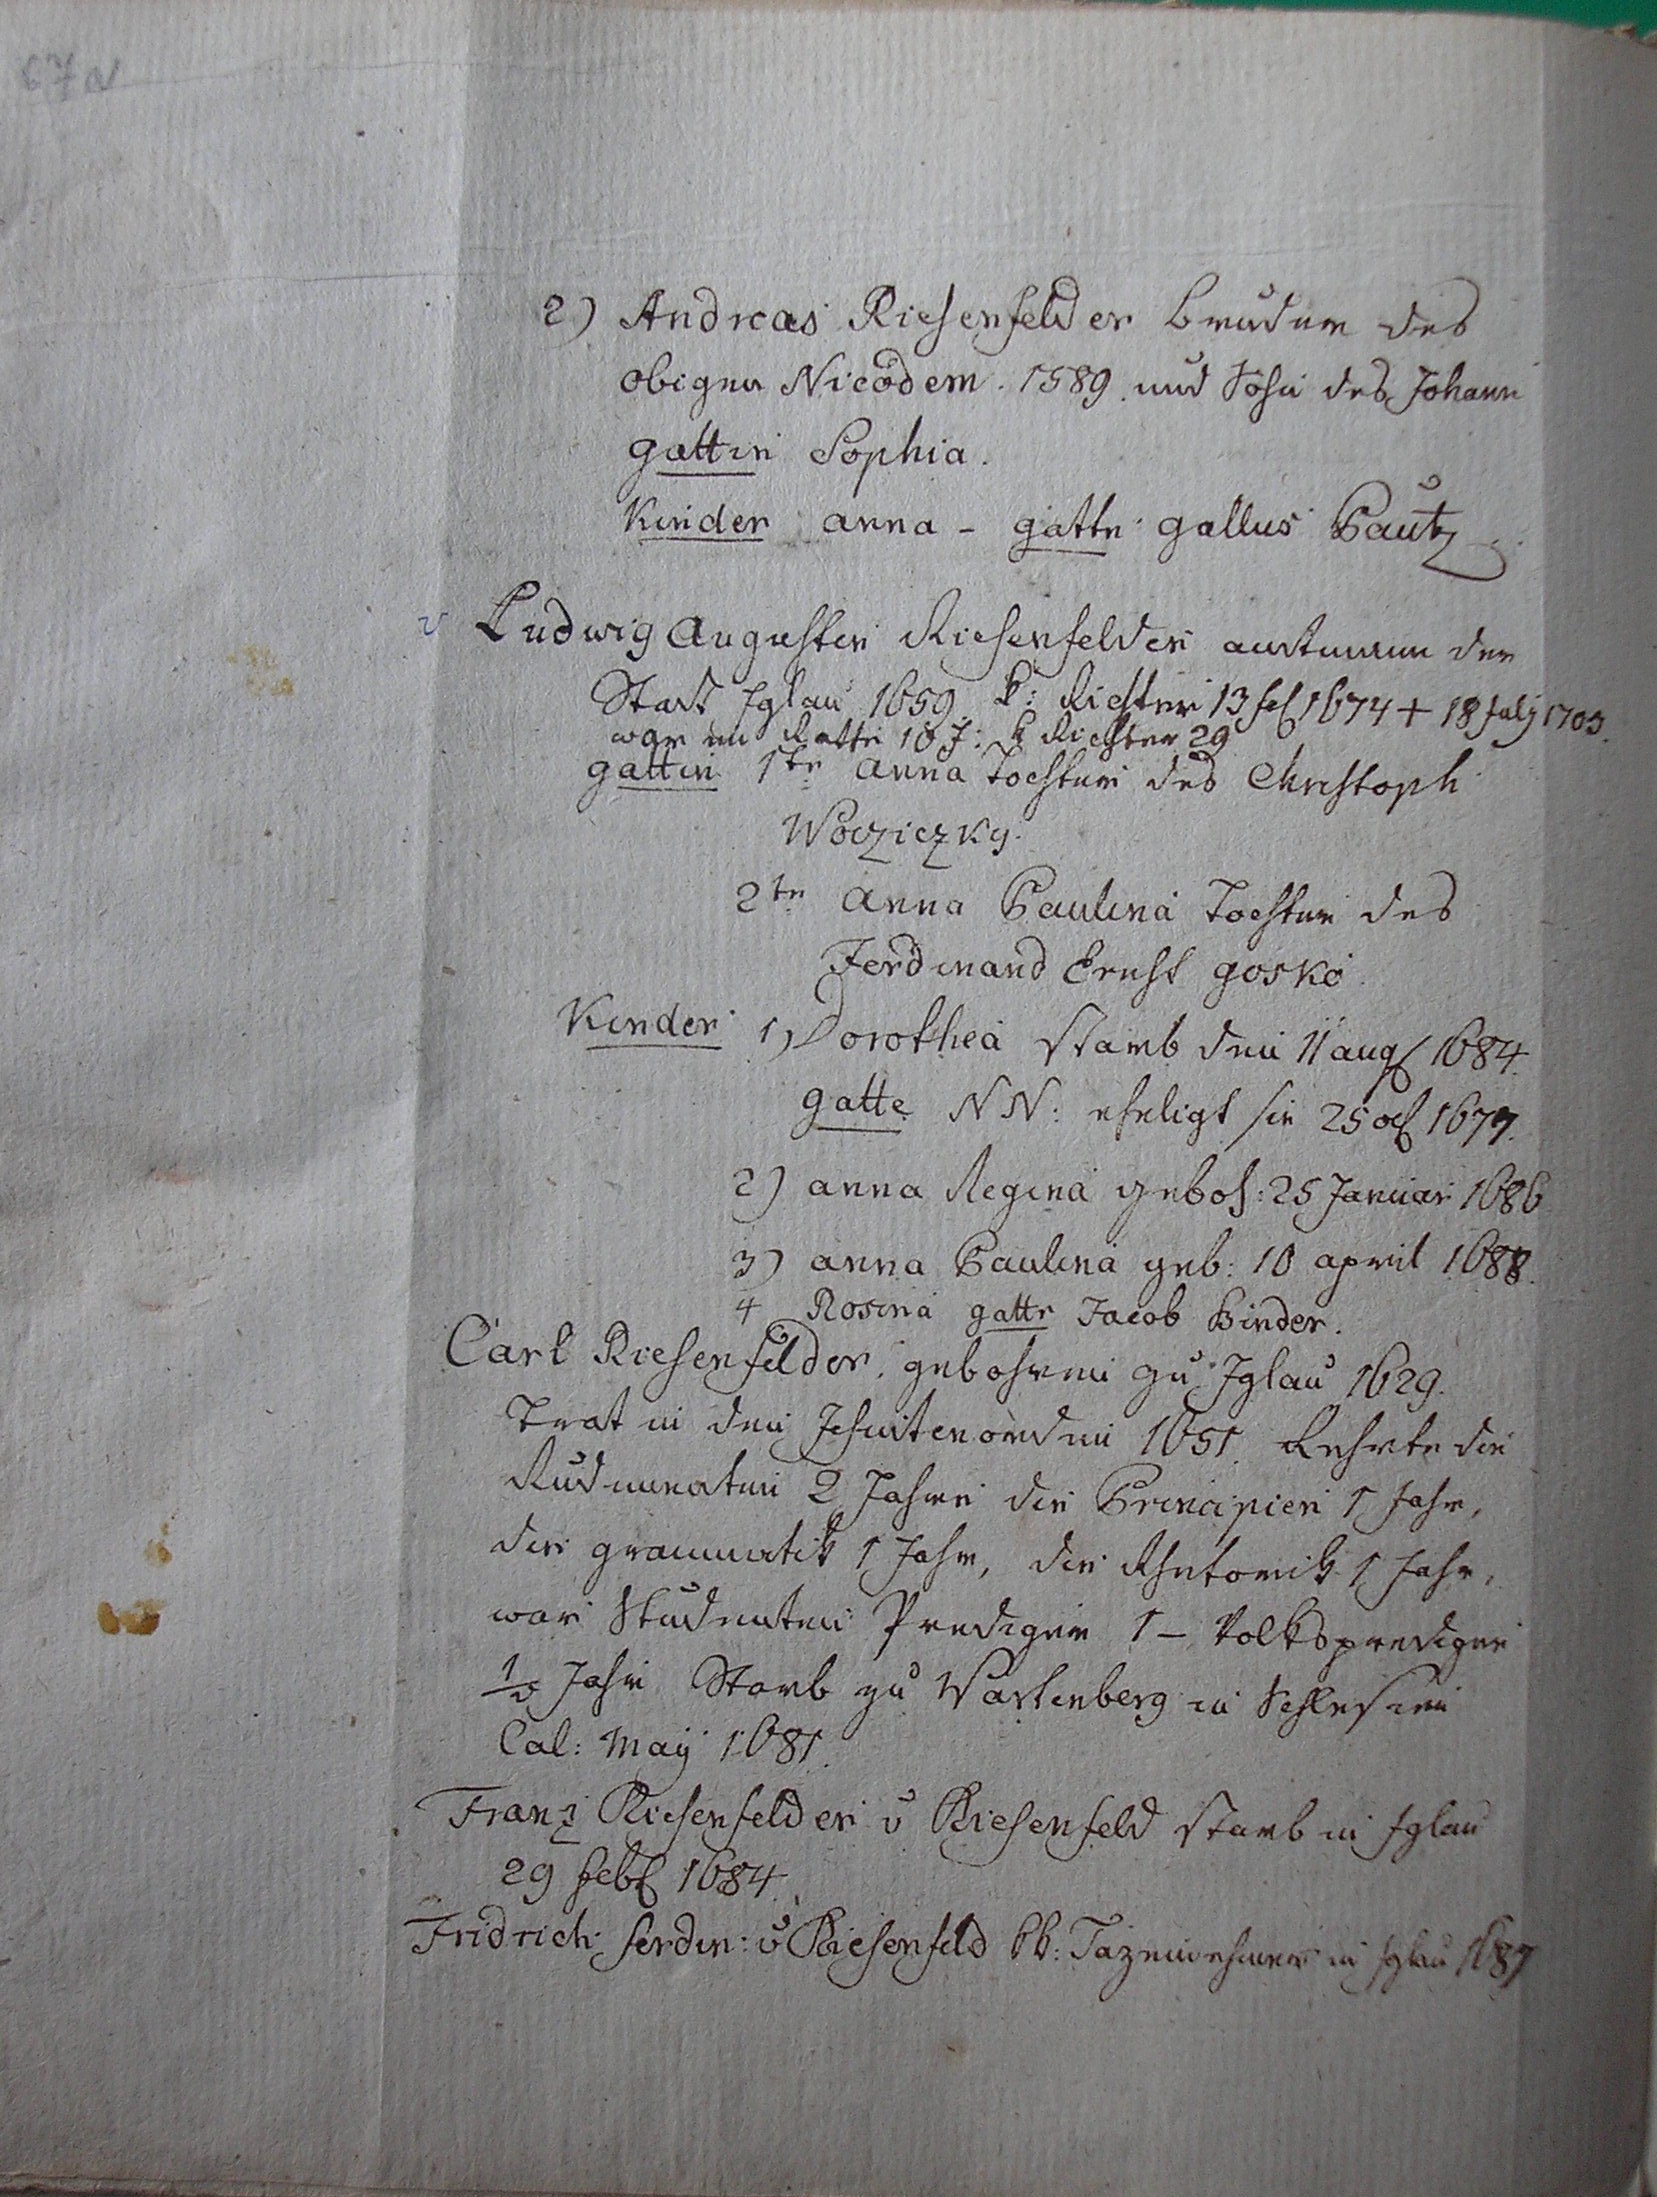 67v
2) Andreas Riesenfelder Bruder des
obigen Nicodem. 1589. und Sohn des Johann
gattin Sophia.
Kinder anna - gatte gallus Pautz
v Ludwig Augustin Riesenfelder amtmann der
Stadt Iglau 1659 k: Richter 13 1674 + 18 July 1703.
war im Rathe 10 J: k Richter 29
gattin 1te Anna Tochter des Christoph
Wocziczky.
2te anna Paulina Tochter des
Ferdinand Ernst gosko
Kinder 1) Dorothea starb den 11 aug 1684.
gatte NN: eheligt sie 25 oct 1677.
2) anna Regina geboh: 25 Januar 1686
3) anna Paulina geb: 10 april 1688.
4 Rosina gatte Jacob Binder.
Carl Riesenfelder, gebohren zu Iglau 1629.
Trat in den Jesuitenorden 1651. Lehrte die
Rudimenten 2 Jahre die Principien 1 Jahr,
die grammatik 1 Jahr, die Rhetorik 1 Jahr,
war Studenten Prediger 1 - Volksprediger
Jahr Starb zu Wartenberg in Schlesien
Cal: Maÿ 1681.
Franz Riesenfelder v Riesenfeld starb in Iglau
29 feb 1684
Fridrich ferdin: v Riesenfeld kk: Tazeinnehmer in Iglau 1687